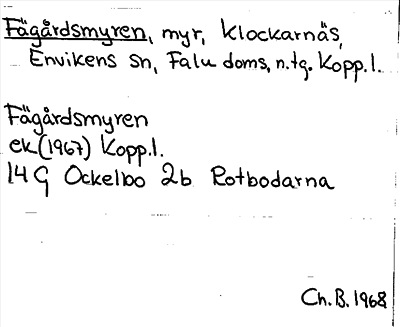 Fägårdsmyren, myr, Klockarnäs,
Envikens sn, Falu doms, n.tg. Kopp.l.
Fägårdsmyren
ek(1967) Kopp.l.
14 G Ockelbo 2b Rotbodarna
Ch.B. 1968